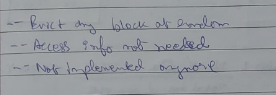 -- Evict any block at random
-- Access info not needed
-- Not implemented anymore